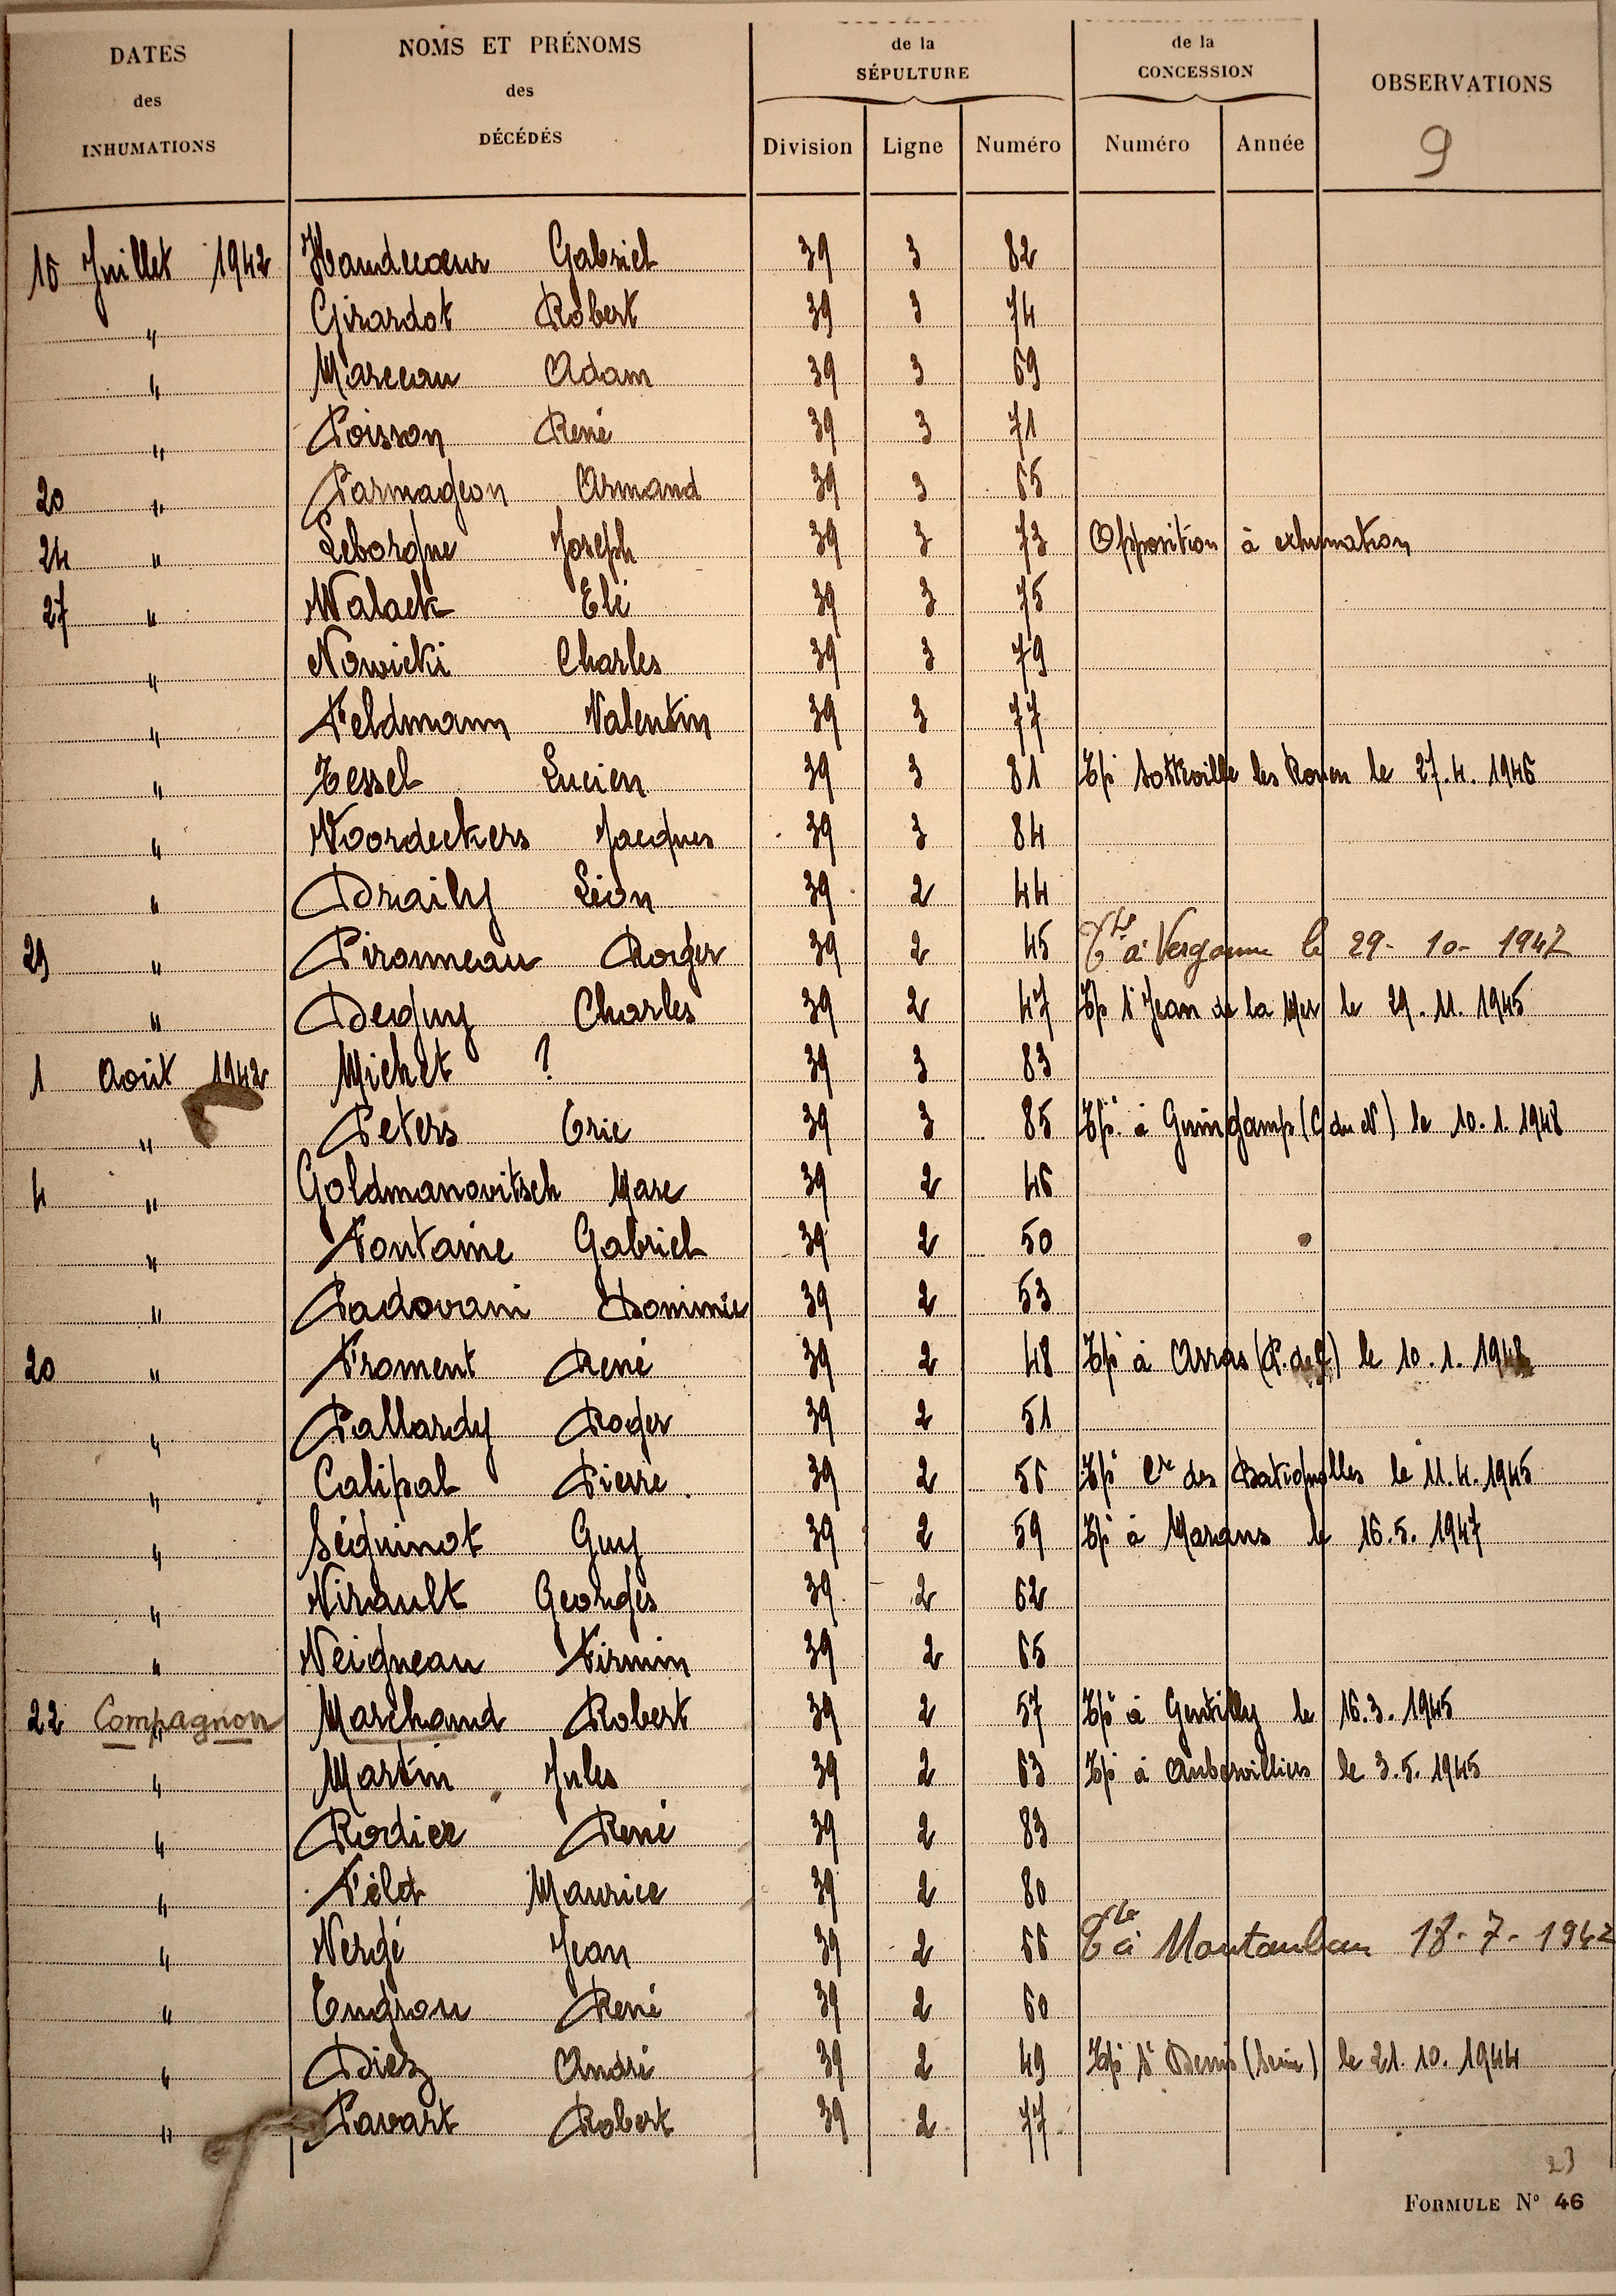 DATES des INHUMATIONS
NOMS ET PRÉNOMS des DÉCÉDÉS
de la SÉPULTURE
de la CONCESSION
OBSERVATIONS
9
Division Ligne Numéro Numéro Année
10 Juillet 1942 Haudecœur Gabriel 39 3 82
" Girardot Robert 39 3 74
" Marceau Adam 39 3 69
" Poisson René 39 3 71
20 " Parmageon Armand 39 3 65
24 " Leborgne Joseph 39 3 73 Opposition à exhumation
27 " Walack Elé 39 3 75
" Nowicki Charles 39 3 79
" Feldmann Valentin 39 3 77
" Tessel Lucien 39 3 81 Tpé Sotteville les Rouen le 27.4.1946
" Voordeckers Jacques 39 3 84
" Draily Léon 39 2 44
29 " Pironneau Roger 39 2 45 à le 29-10-1942
" Deguy Charles 39 2 47 Tpé St Jean de la Mer le 29.11.1945
1 Août 1942 Michet ? 39 3 83
" Peters Eric 39 3 85 Tpé à Guingamp (C du N) le 10.1.1948
4 " Goldmanovitsch Marc 39 2 46
" Fontaine Gabriel 39 2 50
" Padovani Dominic 39 2 53
20 " Froment René 39 2 48 Tpé à Arras (P. de C.) le 10.1.1948
" Pallardy Roger 39 2 51
" Calipal Pierre. 39 2 56 Tpé Cre des Batignolles le 11.4.1945
" Séguinot Guy 39 2 59 Tpé à Marans le 16.5.1947
" Virault Georges 39 2 62
" Veigneau Firmin 39 2 65
22 Compagnon " Marchand Robert 39 2 57 Tpé à Gentilly le 16.3.1945
" Martin Jules 39 2 63 Tpé à Aubervilliers le 3.5.1945
" Rodier René 39 2 83
" Féld Maurice 39 2 80
" Vergé Jean 39 2 66 à Montauban 18-7-1942
" Engrou René 39 2 60
" Diez André 39 2 49 Tpé St Denis (Seine) le 21.10.1944
" Pavart Robert 39 2 77
23
FORMULE N° 46